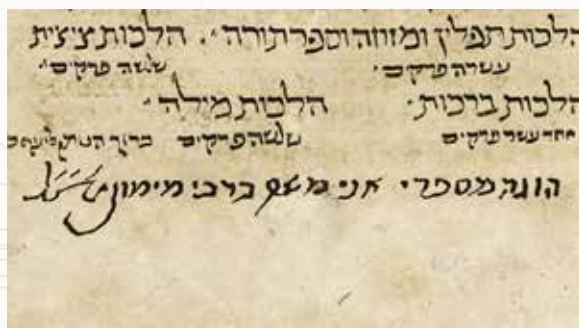 הלכות תפלין ומזוזה וספר תורה׳. הלכות ציצית
עשרה פרקים׳ שלשה פרקים׳׳
הלכות ברכות׳ הלכות מילה׳
אחד עשר פרקים שלשה פרקים ברוך
הוגה מספרי אני משה ברבי מימון